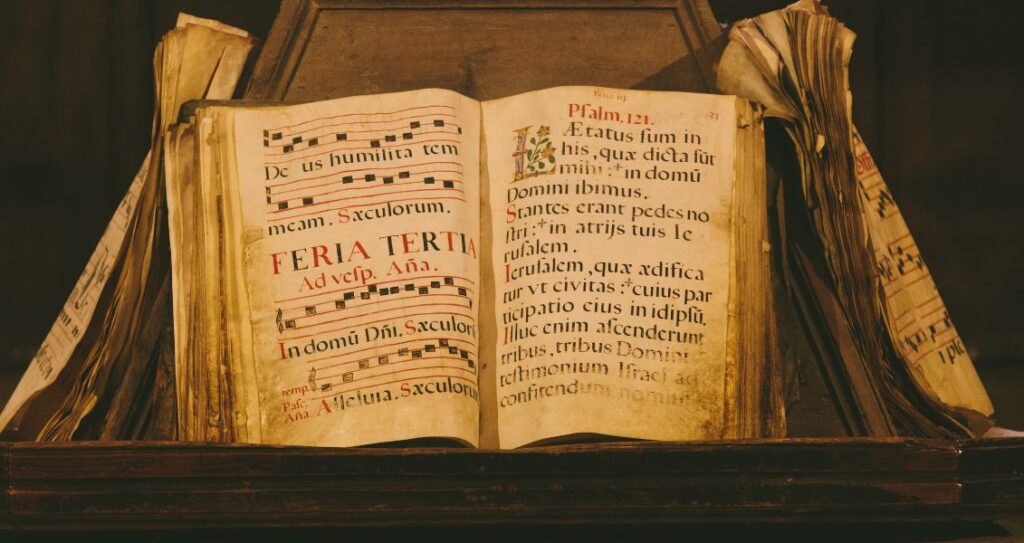 De us humilita tem
meam. Sæculorum.
FERIA TERTIA
Ad veſp. Aña.
In domũ Dñi. Sæculor
temp.
Paſc.
Aña. Alleluia. Sæculor
Feria iij. 33
Pſalm. 121.
LÆtatus ſum in
his, quæ dicta ſũt
mihi : + in domũ
Domini ibimus.
Stantes erant pedes no
ſtri : + in atrijs tuis Ie
ruſalem.
Ieruſalem, quæ ædifica
tur vt civitas : + cuius par
ticipatio eius in idipſũ.
Illuc enim aſcenderunt
tribus, tribus Domini
teſtimonium Iſrael ad
confitendum nomini